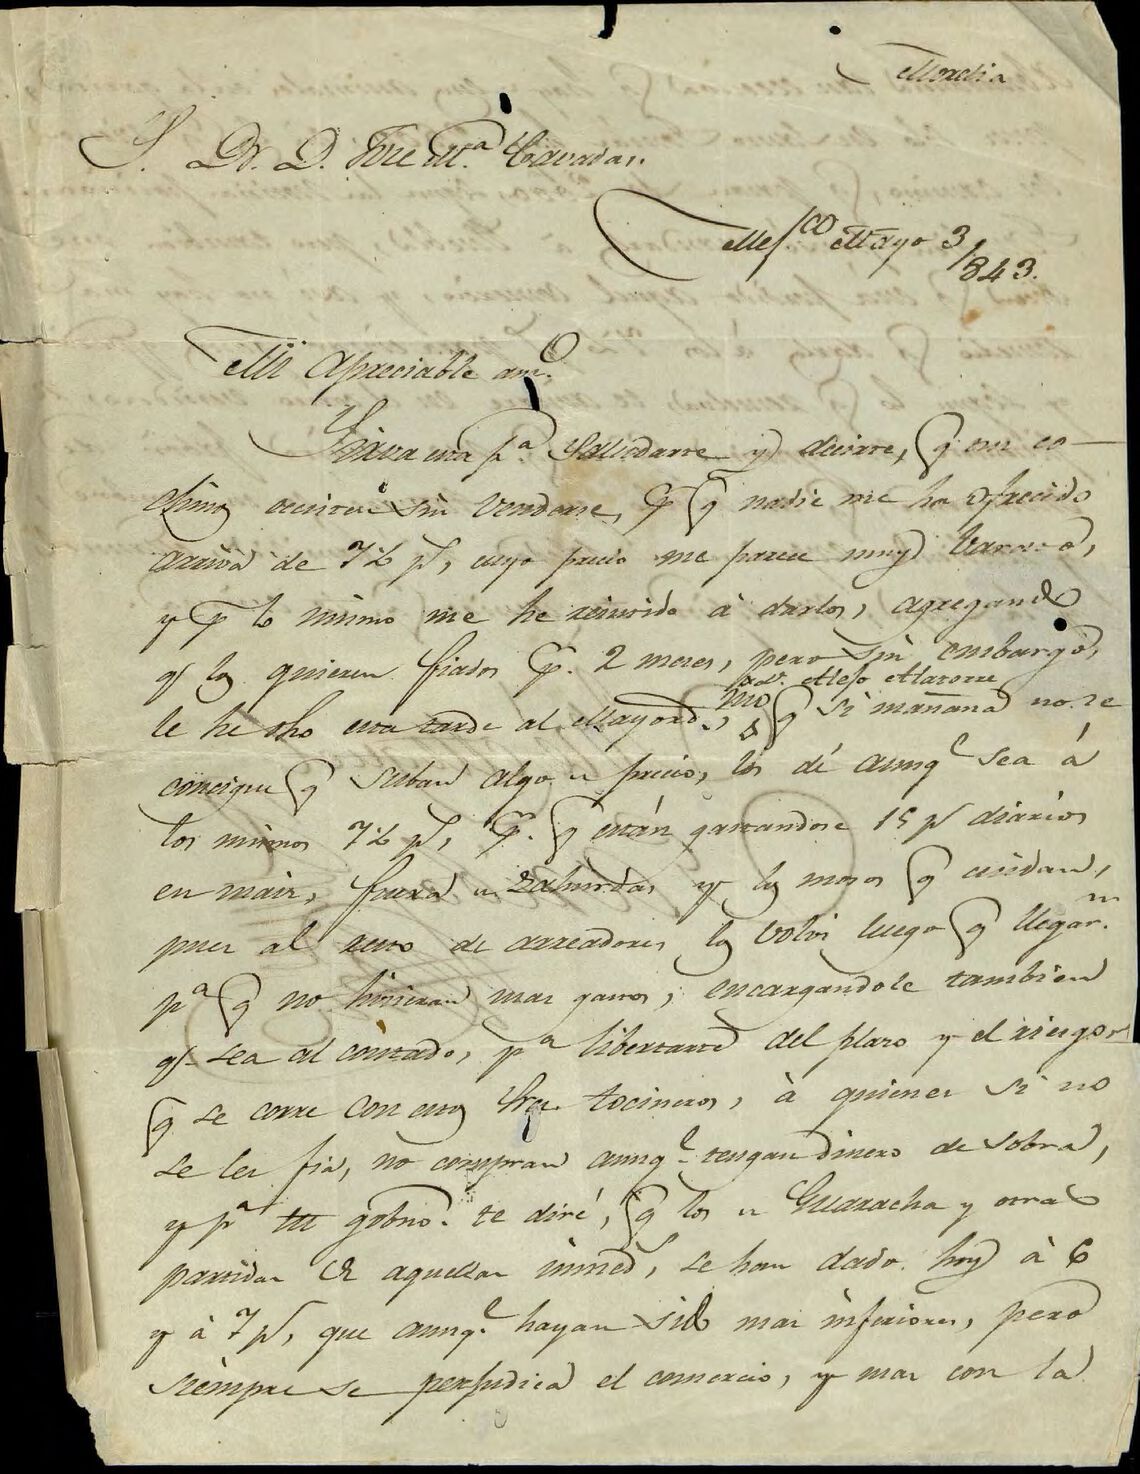 Morelia
S. Dr. D. Jose M.ª Cavadas.
Mej.co Mayo 3/843.
Mi apreciable am.o
Sirva esta p.ª Saludarte y decirte, q. tus co-
chinos existen sin venderse, p.r q. nadie me ha ofrecido
arriva de 7½ p.s, cuyo precio me parece muy barato,
y p.r lo mismo me he resistido à darlos, agregando
q. los quieren fiados p.r 2 meses, pero sin embargo,
le he dho esta tarde al Mayord.mo, q. si mañana no se
Alejo Alatorre
consigue q. suban algo el precio, los dé aunq.e sea á
los mismos 7½ p.s, p.r q. están gastandose 15 p.s diários
en maiz, fuera de zahurdas y los mozos q. cuidan,
pues al resto de arreadores los volvi luego q. llegar.n
p.ª q. no hicieran mas gastos, encargandole tambien
q. sea al contado, p.ª libertarte del plazo y el riesgo
q. se corre con estos tocineros, à quienes si no
se les fia, no compran aunq.e tengan dinero de sobra,
y p.ª tu gobno. te diré, q. los de Guaracha y otras
partidas de aquellas inmed.s, se han dado hoy à 6
y à 7 p.s, que aunq.e hayan sido mas inferiores, pero
siempre se perjudica el comercio, y mas con la